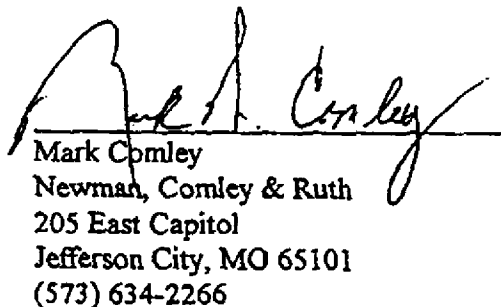 Mark W. Comley
Mark Comley
Newman, Comley & Ruth
205 East Capitol
Jefferson City, MO 65101
(573) 634-2266